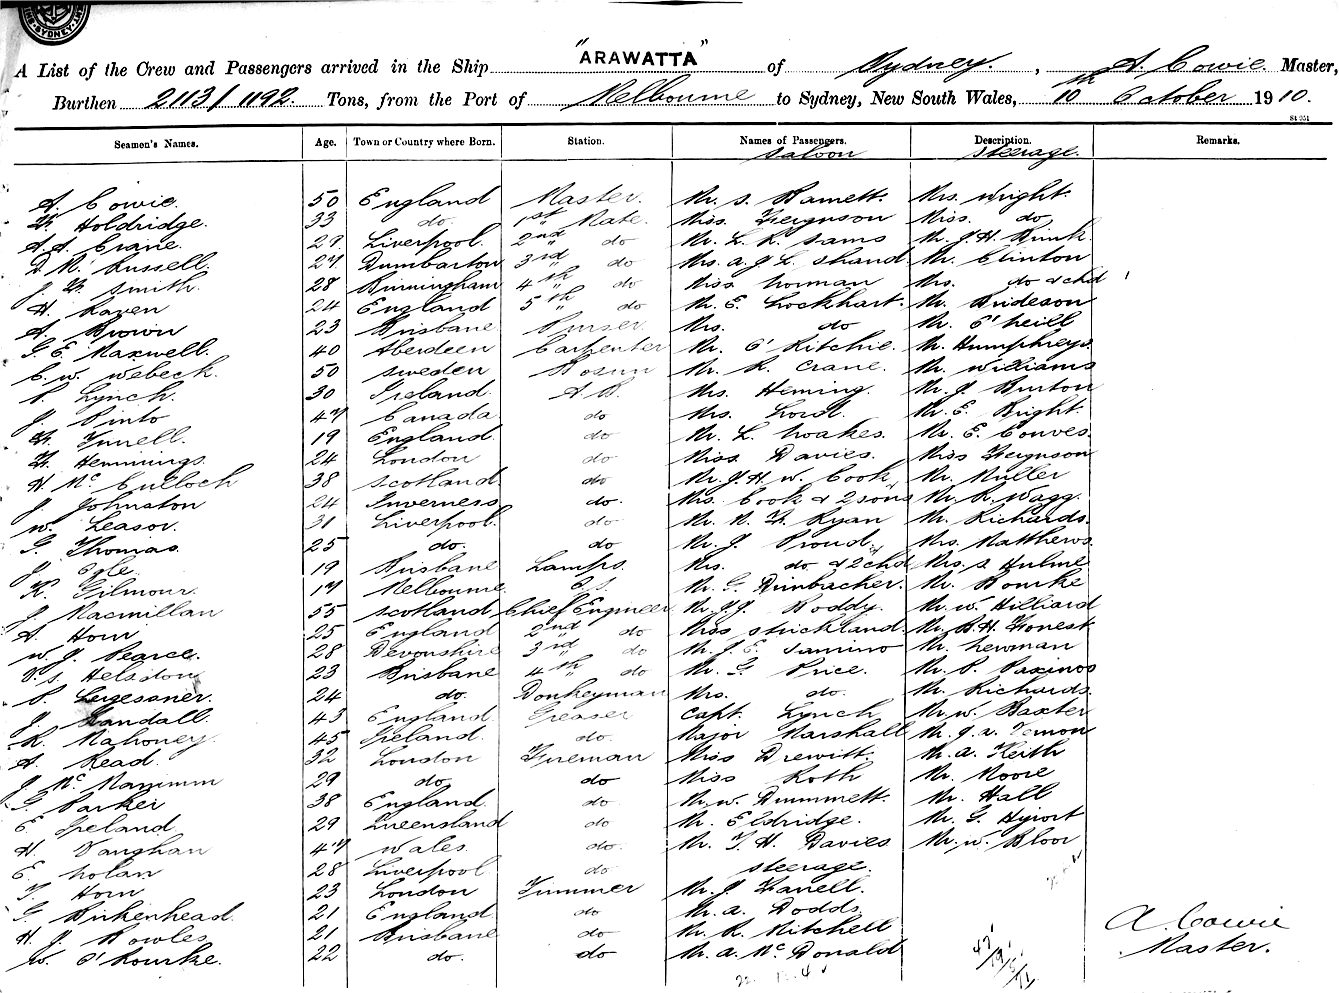 SYDNEY
"ARAWATTA"
A List of the Crew and Passengers arrived in the Ship of Sydney. , A. Cowie. Master,
Burthen 2113/1192. Tons, from the Port of Melbourne to Sydney, New South Wales, 10th October 1910.
Seamen's Names. Age. Town or Country where Born. Station. Names of Passengers. Description. Remarks.
Saloon Steerage.
A. Cowie. 50 England Master. Mr. S. Barnett. Mrs. Wright.
Holdridge. 33 do. 1st Mate. Miss. Ferguson Miss. do
A.A. Crane. 29 Liverpool. 2nd " do Mr. L. R. Sams Mr. J. H. Rink.
D. R. Russell. 27 Dumbarton 3rd " do Mrs. A. J. L. Shand Mr. Clinton
J. Smith. 28 Birmingham 4th " do Miss Norman Mrs. do & chd
H. Raven 24 England 5th " do Mr. E. Lockhart. Mr. Brideson
A. Brown 23 Brisbane Purser. Mrs. do Mr. O'Neill
G. E. Maxwell. 40 Aberdeen Carpenter Mr. O'Ritchie. Mr. Humphreys.
C. W. Webeck. 50 Sweden Bosun Mr. R. Crane. Mr. Williams
P. Lynch. 30 Ireland. A.B. Mrs. Heming. Mr. J. Burton
J. Pinto 47 Canada do Mrs. Lord. Mr. E. Knight.
Tunell. 19 England do Mr. L. Noakes. Mr. E. Couves.
Hemmings. 24 London do Miss. Davies. Miss Ferguson
H. McCulloch 38 Scotland do Mr. J. H. W. Cook Mr. Muller
J. Johnston 24 Inverness do. Mrs. Cook & 2 sons Mr. R. Wagg.
W. Leasor. 31 Liverpool. do Mr. Ryan Mr. Richards.
G. Thomas. 25 do. do Mr. J. Proud Mrs. Matthews.
J. Ogle 19 Brisbane Lamps. Mrs. do & 2 chd Mrs. S. Hulme
R. Gilmour. 17 Melbourne. O.S. Mr. G. Dimbacher. Mr. Bourke
J. Macmillan 55 Scotland Chief Engineer Mr. J. J. Roddy. Mr. W. Hilliard
A. Horn 25 England 2nd " do Miss Strickland. Mr. B. H. Honest
W. J. Pearce. 28 Devonshire 3rd " do Mr. J. E. Samino Mr. Newman
V. S. Helsdon 23 Brisbane 4th " do Mr. G. Price. Mr. P. Paxinos
P. Legessner. 24 do. Donkeyman Mrs. do. Mr. Richards.
J. Randall 43 England. Greaser Capt. Lynch Mr. W. Baxter
R. Mahoney. 45 Ireland. do. Major Marshall Mr. J. A. Vernon
A. Read. 32 London Fireman Miss Drewitt. Mr. A. Keith
J. McManimm 29 do do Miss Roth Mr. Moore
G. Parker 38 England. do Mr. W. Drummett. Mr. Hall
E. Ireland 29 Queensland do Mr. Eldridge. Mr. G. Hyort
H. Vaughan 47 Wales. do. Mr. T. H. Davies Mr. W. Bloor
E. Nolan 28 Liverpool do Steerage.
T. Horn 23 London Trimmer Mr. J. Farrell.
G. Birkenhead. 21 England do Mr. A. Dodds A. Cowie
H. J. Rowles. 21 Brisbane do Mr. R. Mitchell Master.
W. O'Rourke. 22 do. do Mr. A. McDonald
47/19/5/71